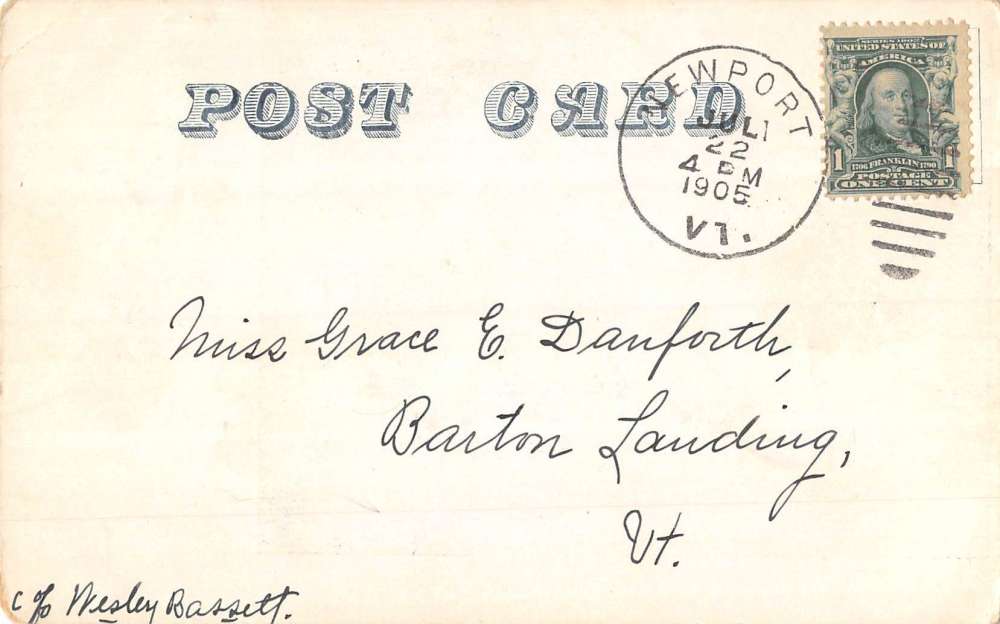 POST CARD
NEWPORT
JUL
22
4 PM
1905
VT.
SERIES 1902
UNITED STATES OF
AMERICA
1706 FRANKLIN 1790
1 POSTAGE 1
ONE CENT
Miss Grace E. Danforth,
Barton Landing,
Vt.
c/o Wesley Bassett.